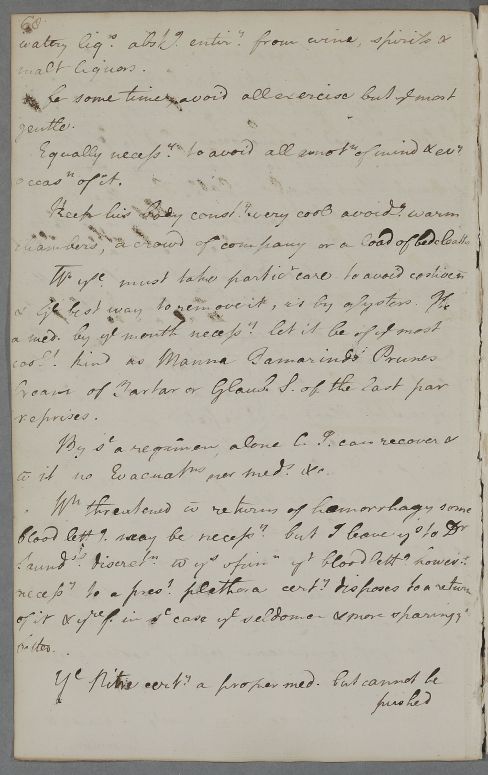 68
watery liqrs. abstg. entirly. from wine, spirits &
malt liquors.
for some time avoid all exercise but ye most
gentle.
Equally necessry. to avoid all emotn. of mind & evy
occasn. of it.
Keep his body constly. very cool avoidg. warm
chambers, a crowd of company or a load of bedcloaths
He must take particr. care to avoid costiveness
& ye best way to remove it, is by glysters. If
a med. by ye mouth necessy. let it be of ye most
coolg. kind as Manna Tamarinds Prunes
Cream of Tartar or Glaub. S. of the last par
reprises.
By sc. a regimen alone C. P. can recover &
wt. it no Evacuatns nor meds. &c.
Wn threatened wt. return of hæmorrhagy some
blood lettg. may be necessry. but I leave ys to Dr
discretn. wt. ys opinn. yt blood lettg. howevr.
necessry. to a prest. plethora certly. disposes to a return
of it & yrefr. in sc. case ye seldomer & more sparingly
better.
Ye Nitre certly. a proper med. but cannot be
pushed